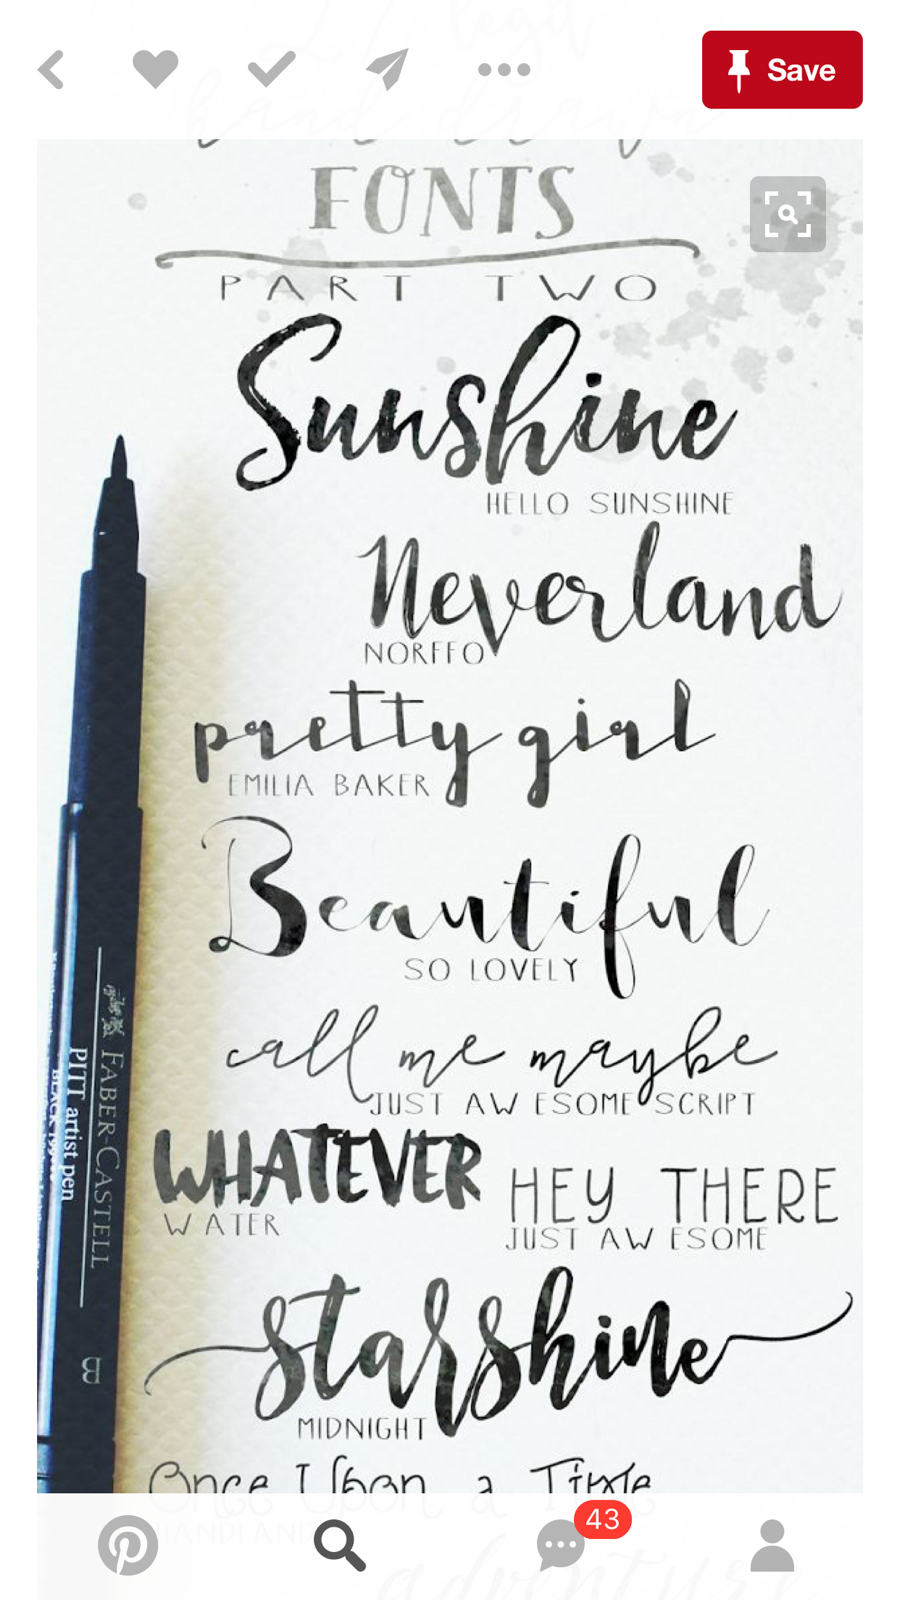 Save
FONTS
PART TWO
Sunshine
HELLO SUNSHINE
Neverland
NORFFO
pretty girl
EMILIA BAKER
Beautiful
SO LOVELY
call me maybe
JUST AW ESOME SCRIPT
WHATEVER
W ATER
HEY THERE
JUST AW ESOME
starshine
MIDNIGHT
Once Upon a Time
FABER-CASTELL
PITT artist pen
BLACK 199
B
43
adventure